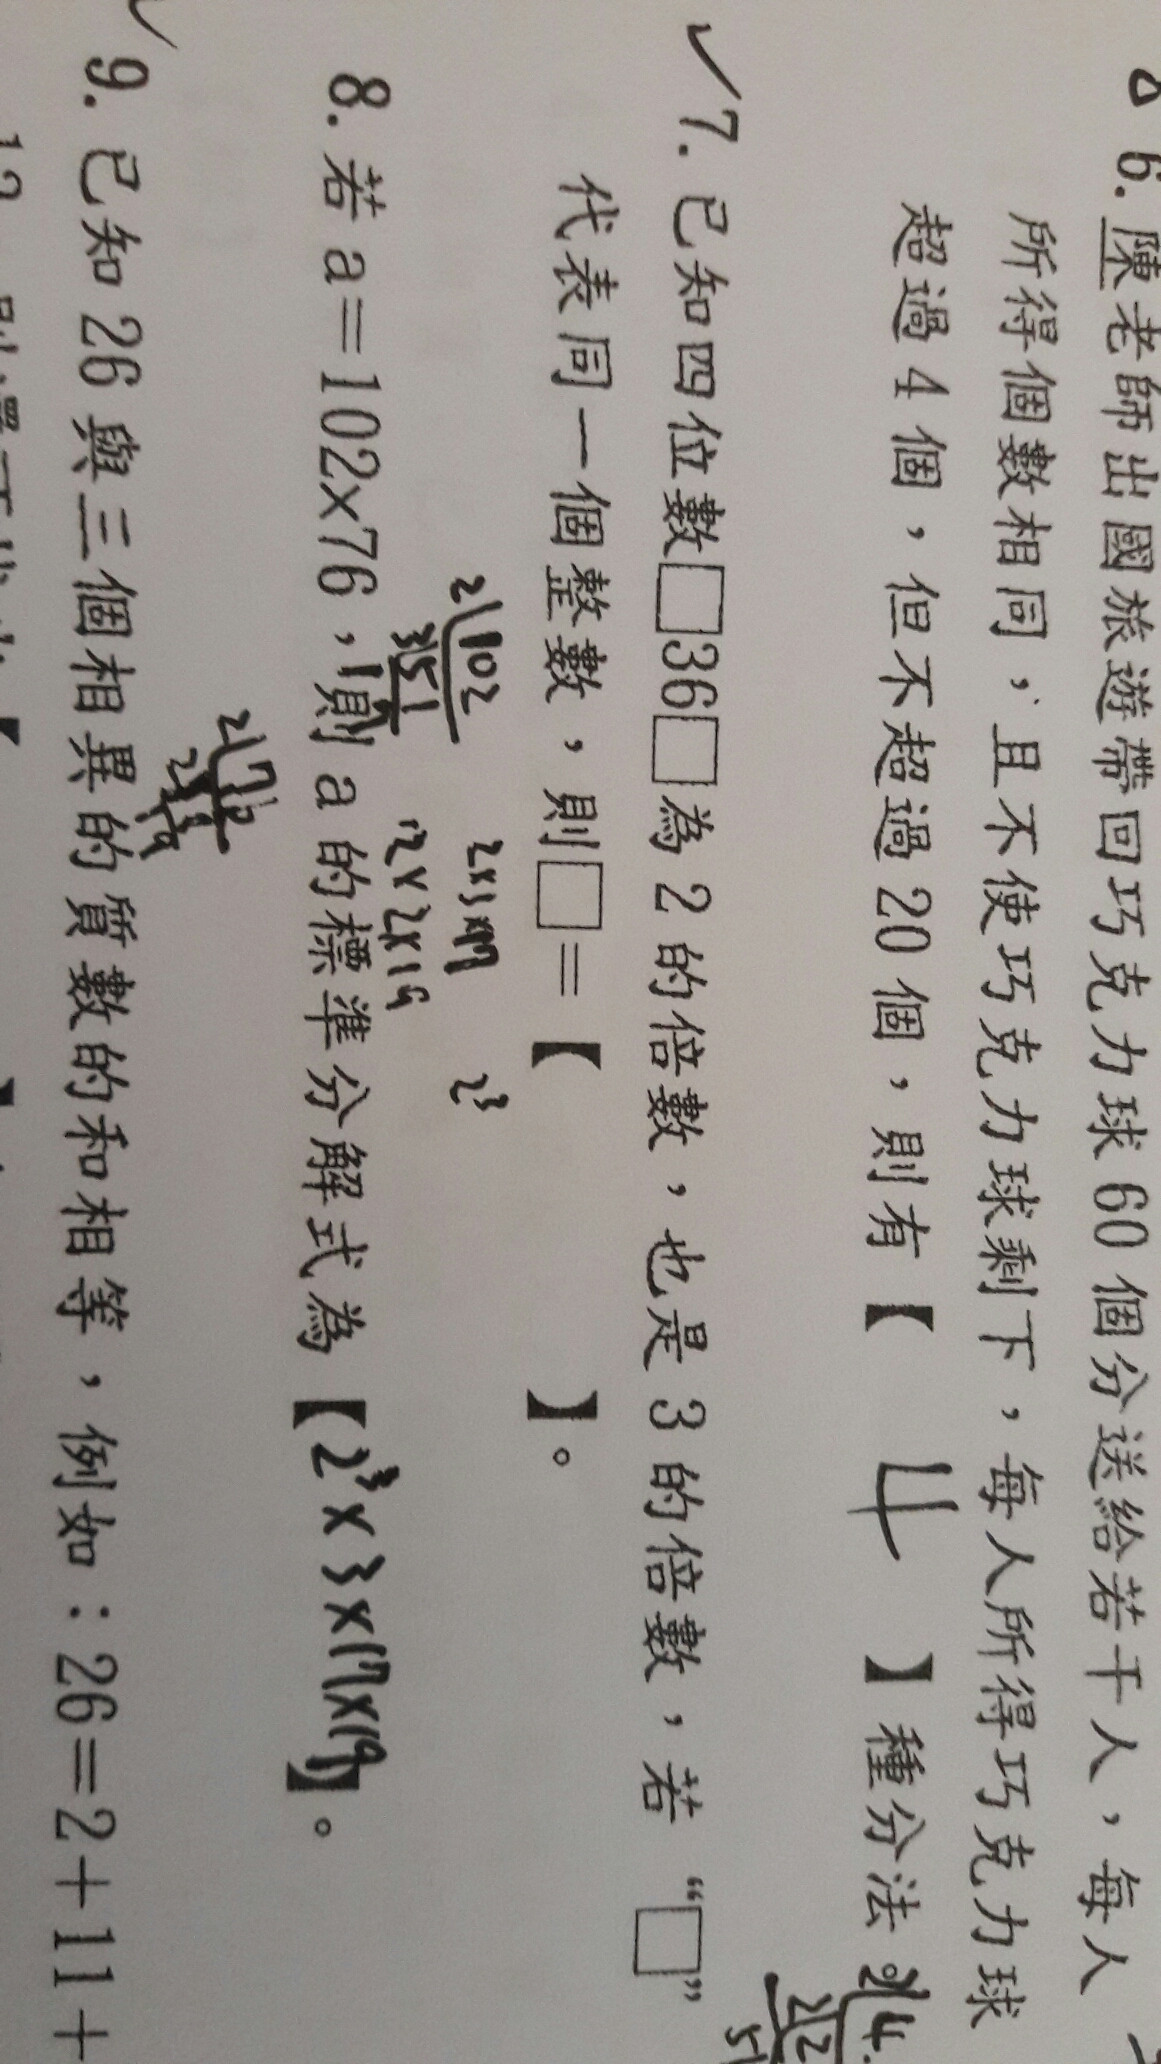 6. 陳老師出國旅遊帶回巧克力球 60 個分送給若干人，每人
所得個數相同，且不使巧克力球剩下，每人所得巧克力球
超過 4 個，但不超過 20 個，則有【 4 】種分法。
7. 已知四位數□36□為 2 的倍數，也是 3 的倍數，若 “□”
代表同一個整數，則□=【 】。
2)102
3)51
17
2×3×17
2³
2×2×19
8. 若 a=102×76，則 a 的標準分解式為【2³×3×17×19】。
2)76
9. 已知 26 與三個相異的質數的和相等，例如：26=2+11+